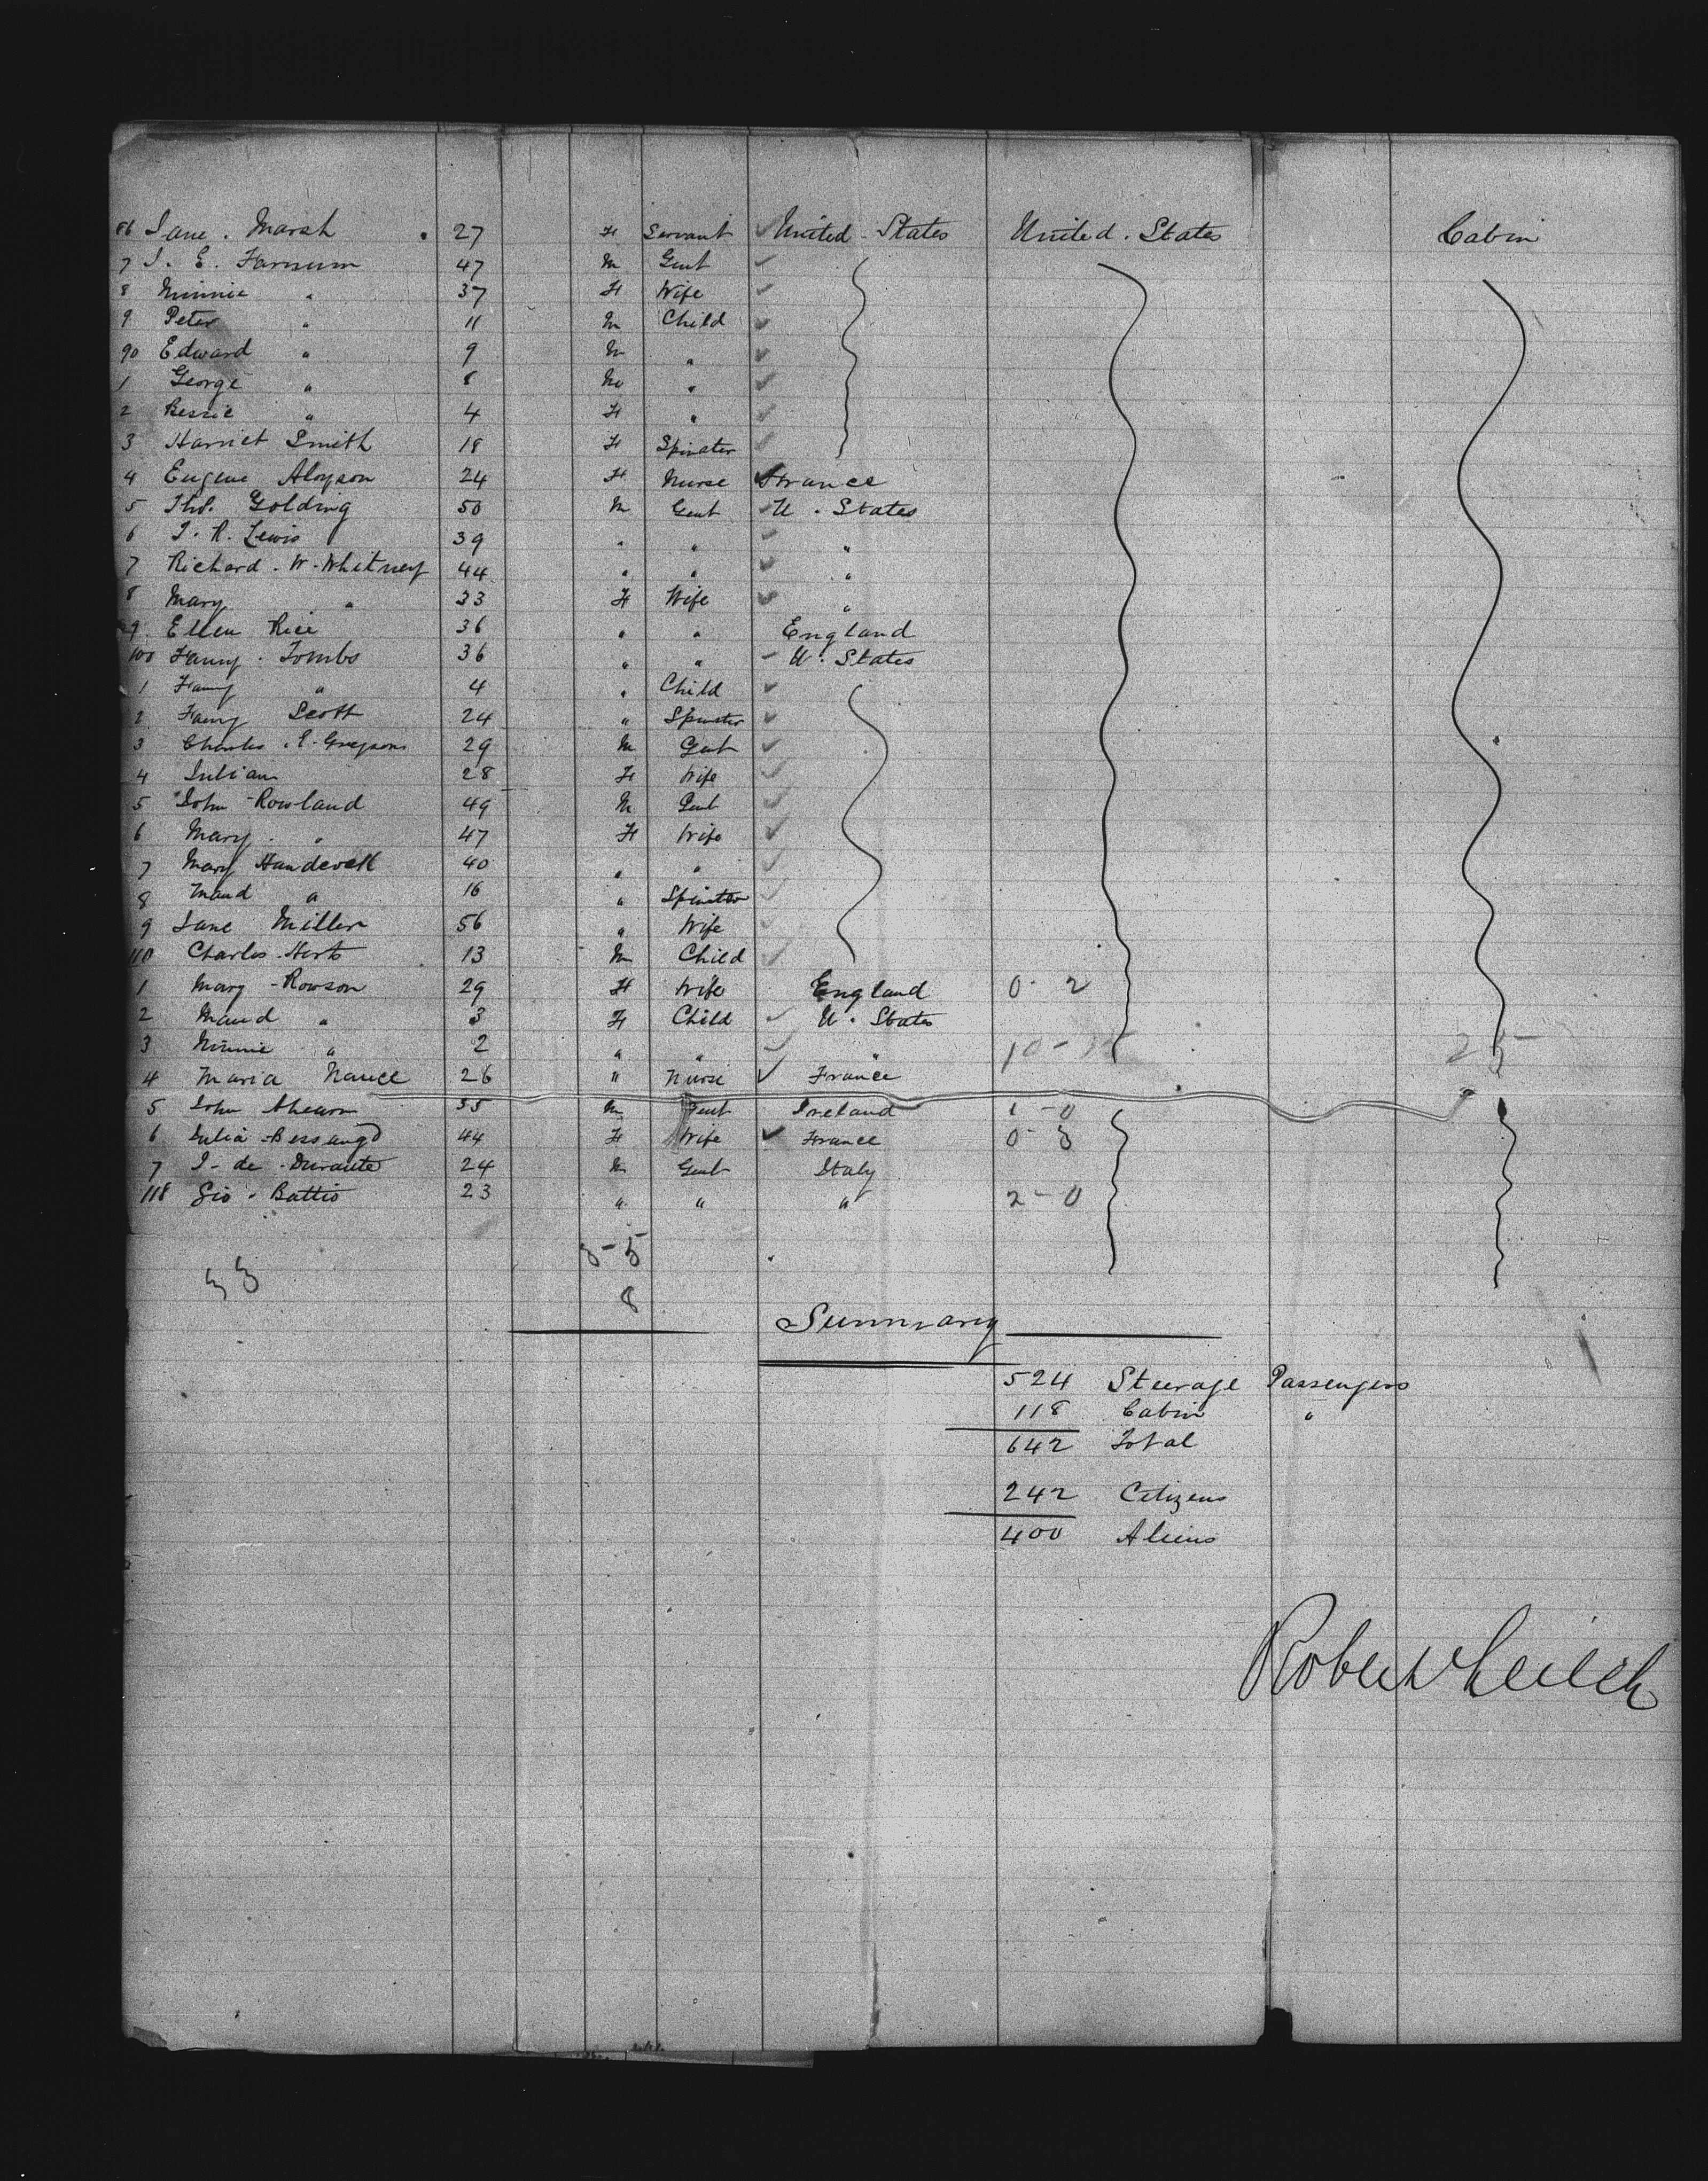 86 Jane . Marsh . 27 F Servant United States United . States Cabin
7 J. E. Farnum 47 M Gent
8 Minnie " 37 F Wife
9 Peter " 11 M Child
90 Edward " 9 M "
1 George " 8 M "
2 Bessie " 4 F "
3 Harriet Smith 18 F Spinster
4 Eugene Aloyson 24 F Nurse France
5 Tho. Golding 50 M Gent U . States
6 J. R. Lewis 39 " " "
7 Richard . W. Whitney 44 " " "
8 Mary " 33 F Wife "
9 Ellen Rice 36 " " England
100 Fanny . Tombs 36 " " U . States
1 Fanny " 4 " Child
2 Fanny Scott 24 " Spinster
3 Charles . E. 29 M Gent
4 Julian 28 F Wife
5 John Rowland 49 M Gent
6 Mary . " 47 F Wife
7 Mary 40 " "
8 Maud " 16 " Spinster
9 Jane Miller 56 " Wife
110 Charles 13 M Child
1 Mary - Rowson 29 F Wife England 0 - 2
2 Maud " 3 F Child U . States
3 Minnie " 2 " " " 10 - 25
4 Maria Nance 26 " Nurse France
5 John Ahearn 35 M Gent Ireland 1 - 0
6 Julia 44 F Wife France 0 - 3
7 J - de - Durante 24 M Gent Italy
118 Gio - Battis 23 " " " 2 - 0
3 - 5
33
8
Summary
524 Steerage Passengers
118 Cabin "
642 Total
242 Citizens
400 Aliens
Robert Leitch